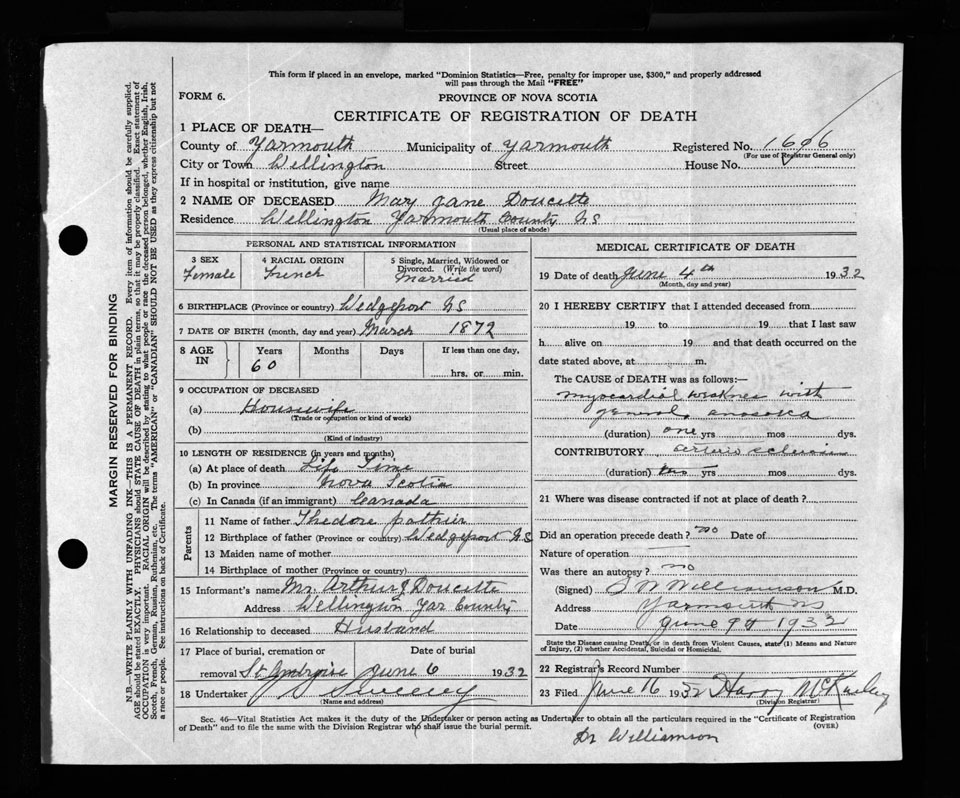 This form if placed in an envelope, marked "Dominion Statistics—Free, penalty for improper use, $300," and properly addressed
will pass through the Mail "FREE"
FORM 6.
PROVINCE OF NOVA SCOTIA
CERTIFICATE OF REGISTRATION OF DEATH
1 PLACE OF DEATH—
County of Yarmouth Municipality of Yarmouth Registered No. 1696
(For use of Registrar General only)
City or Town Wellington Street House No.
If in hospital or institution, give name
2 NAME OF DECEASED Mary Jane Doucette
Residence Wellington Yarmouth County NS
(Usual place of abode)
PERSONAL AND STATISTICAL INFORMATION
3 SEX Female
4 RACIAL ORIGIN French
5 Single, Married, Widowed or Divorced. (Write the word) Married
6 BIRTHPLACE (Province or country) Wedgeport NS
7 DATE OF BIRTH (month, day and year) March 1872
8 AGE IN Years 60 Months Days If less than one day, hrs. or min.
9 OCCUPATION OF DECEASED
(a) Housewife
(Trade or occupation or kind of work)
(b)
(Kind of industry)
10 LENGTH OF RESIDENCE (in years and months)
(a) At place of death Life Time
(b) In province Nova Scotia
(c) In Canada (if an immigrant) Canada
Parents
11 Name of father Thedore pothier
12 Birthplace of father (Province or country) Wedgeport NS
13 Maiden name of mother
14 Birthplace of mother (Province or country)
15 Informant's name Mr. Arthur J Doucette
Address Wellington Yar County
16 Relationship to deceased Husband
17 Place of burial, cremation or removal St. Ambroise Date of burial June 6 1932
18 Undertaker Sweeney
(Name and address)
MEDICAL CERTIFICATE OF DEATH
19 Date of death June 4th 1932
(Month, day and year)
20 I HEREBY CERTIFY that I attended deceased from
19 to 19 that I last saw
h alive on 19 and that death occurred on the
date stated above, at m.
The CAUSE OF DEATH was as follows:—
myocardial weakness with
general
(duration) one yrs mos dys.
CONTRIBUTORY arterio sclerosis
(duration) yrs mos dys.
21 Where was disease contracted if not at place of death?
Did an operation precede death? no Date of
Nature of operation
Was there an autopsy? no
(Signed) Williamson M.D.
Address Yarmouth NS
Date June 9th 1932
State the Disease causing Death, or in death from Violent Causes, state (1) Means and Nature
of Injury, (2) whether Accidental, Suicidal or Homicidal.
22 Registrar's Record Number
23 Filed June 16 1932 Harry McKinley
(Division Registrar)
Sec. 46—Vital Statistics Act makes it the duty of the Undertaker or person acting as Undertaker to obtain all the particulars required in the "Certificate of Registration
of Death" and to file the same with the Division Registrar who shall issue the burial permit.
(OVER)
Dr Williamson
MARGIN RESERVED FOR BINDING
N.B.—WRITE PLAINLY WITH UNFADING INK—THIS IS A PERMANENT RECORD. Every item of information should be carefully supplied.
AGE should be stated EXACTLY. PHYSICIANS should STATE CAUSE OF DEATH in plain terms, so that it may be properly classified. Exact statement of
OCCUPATION is very important. RACIAL ORIGIN will be described by stating to what people or race the deceased person belonged, whether English, Irish,
Scotch, French, German, Russian, Ruthenian, etc. The terms "AMERICAN" or "CANADIAN" SHOULD NOT BE USED as they express citizenship but not
a race or people. See instructions on back of Certificate.